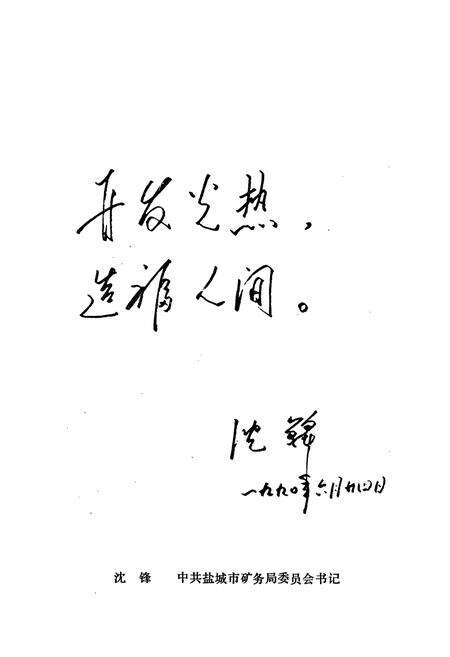 开发光热，
造福人间。
沈锋
一九九〇年六月廿四日
沈 锋 中共盐城市矿务局委员会书记